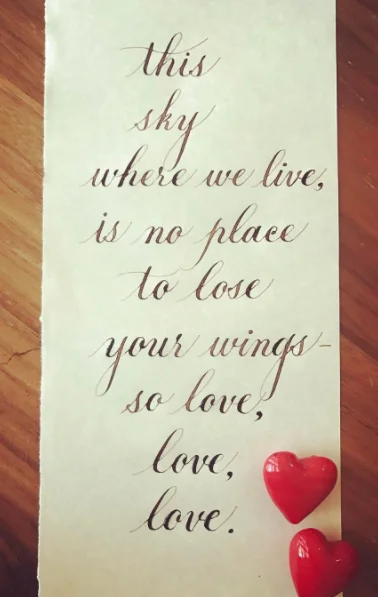 this
sky
where we live,
is no place
to lose
your wings-
so love,
love,
love.